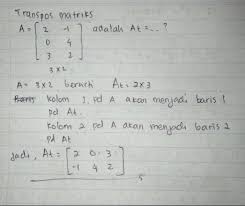 Transpos matriks
A = [ 2 -1 adalah At = ... ?
0 4
3 2 ]
3 x 2
A = 3x2 berarti At = 2x3
Baris kolom 1 pd A akan menjadi baris 1
pd At.
kolom 2 pd A akan menjadi baris 2
pd At
Jadi, At = [ 2 0 3
-1 4 2 ]